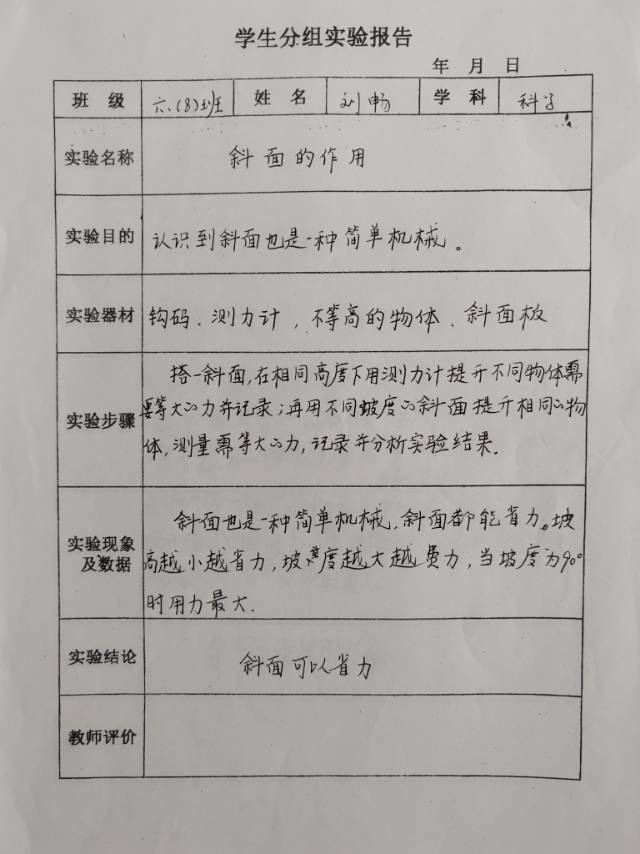 学生分组实验报告
年 月 日
班 级 六.(8)班 姓 名 刘畅 学 科 科学
实验名称 斜面的作用
实验目的 认识到斜面也是一种简单机械。
实验器材 钩码、测力计,不等高的物体、斜面板
实验步骤
搭一斜面,在相同高度下用测力计提升不同物体需
要等大的力并记录;再用不同坡度的斜面提升相同的物
体,测量需等大的力,记录并分析实验结果.
实验现象
及数据
斜面也是一种简单机械,斜面都能省力。坡
高越小越省力,坡度越大越费力,当坡度为90°
时用力最大.
实验结论 斜面可以省力
教师评价